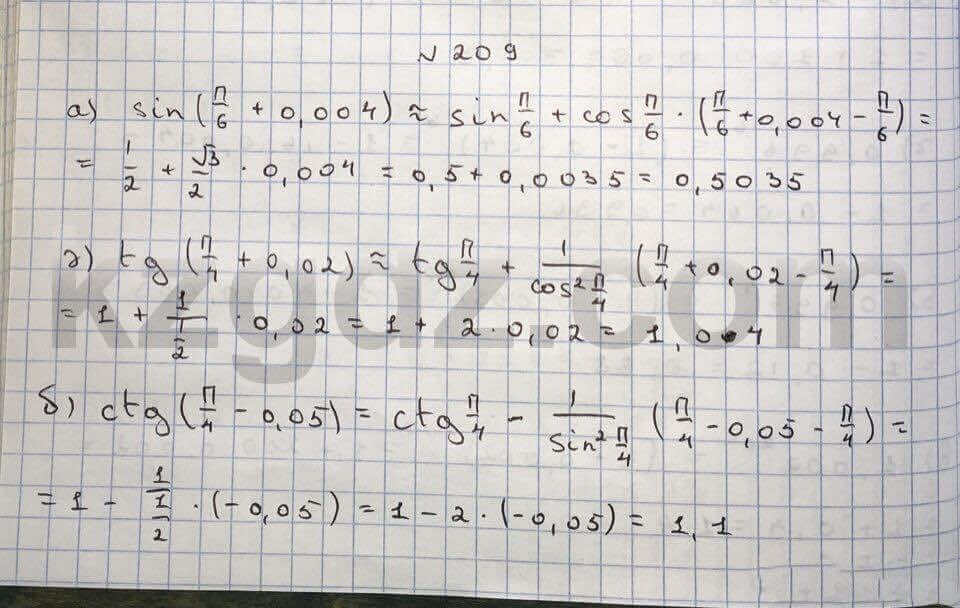 № 209
а) sin(π/6 + 0,004) ≈ sin π/6 + cos π/6 · (π/6 + 0,004 − π/6) =
= 1/2 + √3/2 · 0,004 = 0,5 + 0,0035 = 0,5035
г) tg(π/4 + 0,02) ≈ tg π/4 + 1/cos² π/4 (π/4 + 0,02 − π/4) =
= 1 + 1/(1/2) · 0,02 = 1 + 2 · 0,02 = 1,04
б) ctg(π/4 − 0,05) = ctg π/4 − 1/sin² π/4 (π/4 − 0,05 − π/4) =
= 1 − 1/(1/2) · (−0,05) = 1 − 2 · (−0,05) = 1,1
kzgdz.com